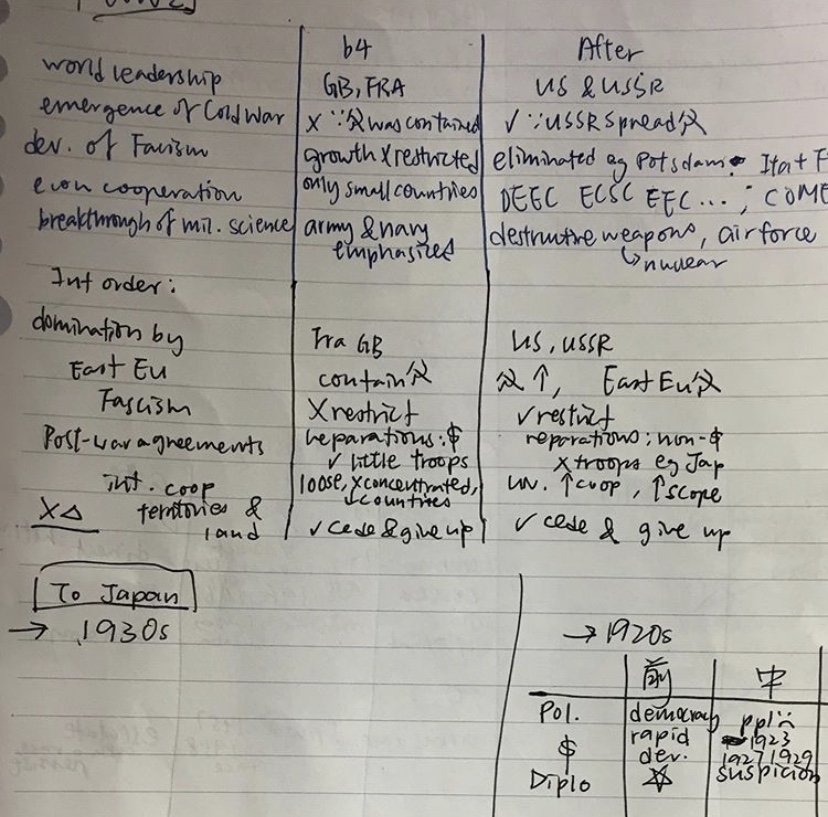 b4 After
world leadership GB, FRA US & USSR
emergence of Cold War X ∵ ☭ was contained ✓ ∵ USSR spread ☭
dev. of Facism growth X restricted eliminated eg Potsdam Ita + F
econ cooperation only small countries OEEC ECSC EEC... ; COME
breakthrough of mil. science army & navy destructive weapons, air force
emphasized ↳ nuclear
Int order:
domination by Fra GB US, USSR
East Eu contain ☭ ☭ ↑, East Eu ☭
Fascism X restrict ✓ restrict
Post-war agreements reparations: $ reparations: non-$
✓ little troops X troops eg Jap
int. coop loose, X concentrated, UN. ↑ coop, ↑ scope
↓ countries
X△ territories & land ✓ cede & give up ✓ cede & give up
To Japan
→ 1930s → 1920s
前 中
Pol. democracy ppl ∵
$ rapid dev. 1923
1927 1929
Diplo ☆ suspicion